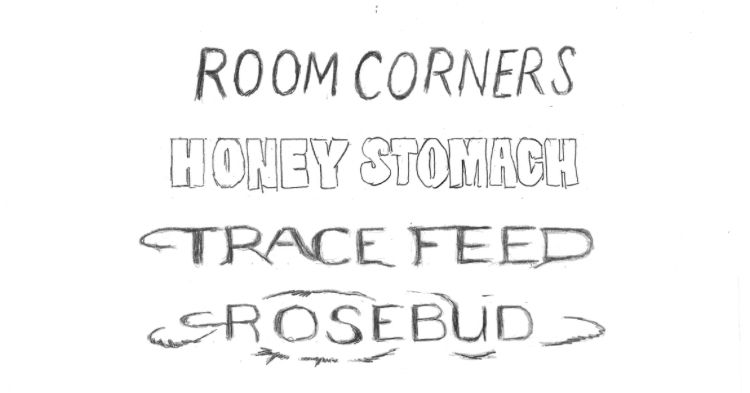 ROOM CORNERS
HONEY STOMACH
TRACE FEED
ROSEBUD